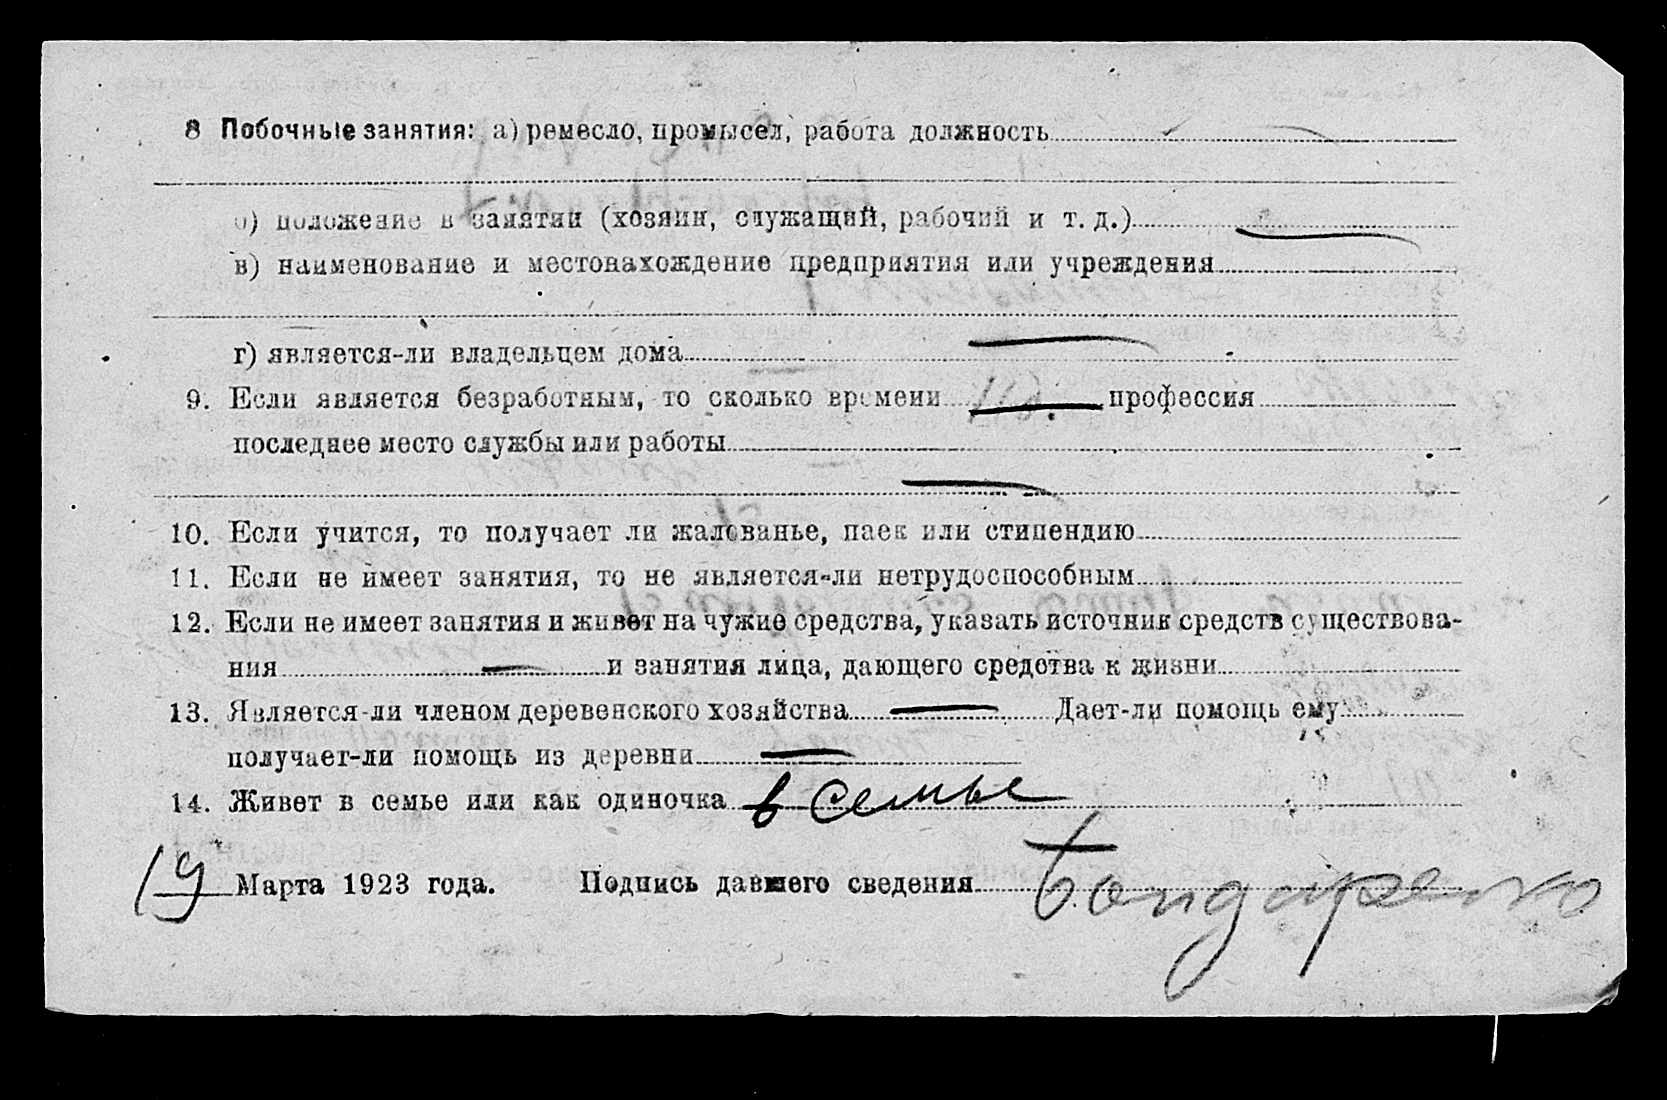 8 Побочные занятия: а) ремесло, промысел, работа должность —
б) положение в занятии (хозяин, служащий, рабочий и т. д.) —
в) наименование и местонахождение предприятия или учреждения
г) является-ли владельцем дома —
9. Если является безработным, то сколько времени — профессия
последнее место службы или работы
—
10. Если учится, то получает ли жалованье, паек или стипендию
11. Если не имеет занятия, то не является-ли нетрудоспособным
12. Если не имеет занятия и живет на чужие средства, указать источник средств существова-
ния — и занятия лица, дающего средства к жизни
13. Является-ли членом деревенского хозяйства — Дает-ли помощь ему
получает-ли помощь из деревни —
14. Живет в семье или как одиночка в семье
19 Марта 1923 года. Подпись давшего сведения Бондаренко